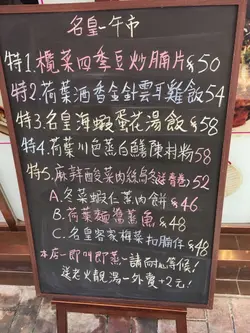 名皇-午市
特1.欖菜四季豆炒腩片$50
特2.荷葉酒香金針雲耳雞飯54
特3.名皇海蝦蛋花湯飯$58
特4.荷葉川白蒸白鱔陳村粉58
特5.麻辣酸菜肉絲烏冬 52
A.冬菜蝦仁蒸肉餅$46
B.荷葉麵醬蒸魚$48
C.名皇客家梅菜扣腩仔$48
本店一即叫即蒸~請耐心等候!
送老火靚湯-外賣+2元!